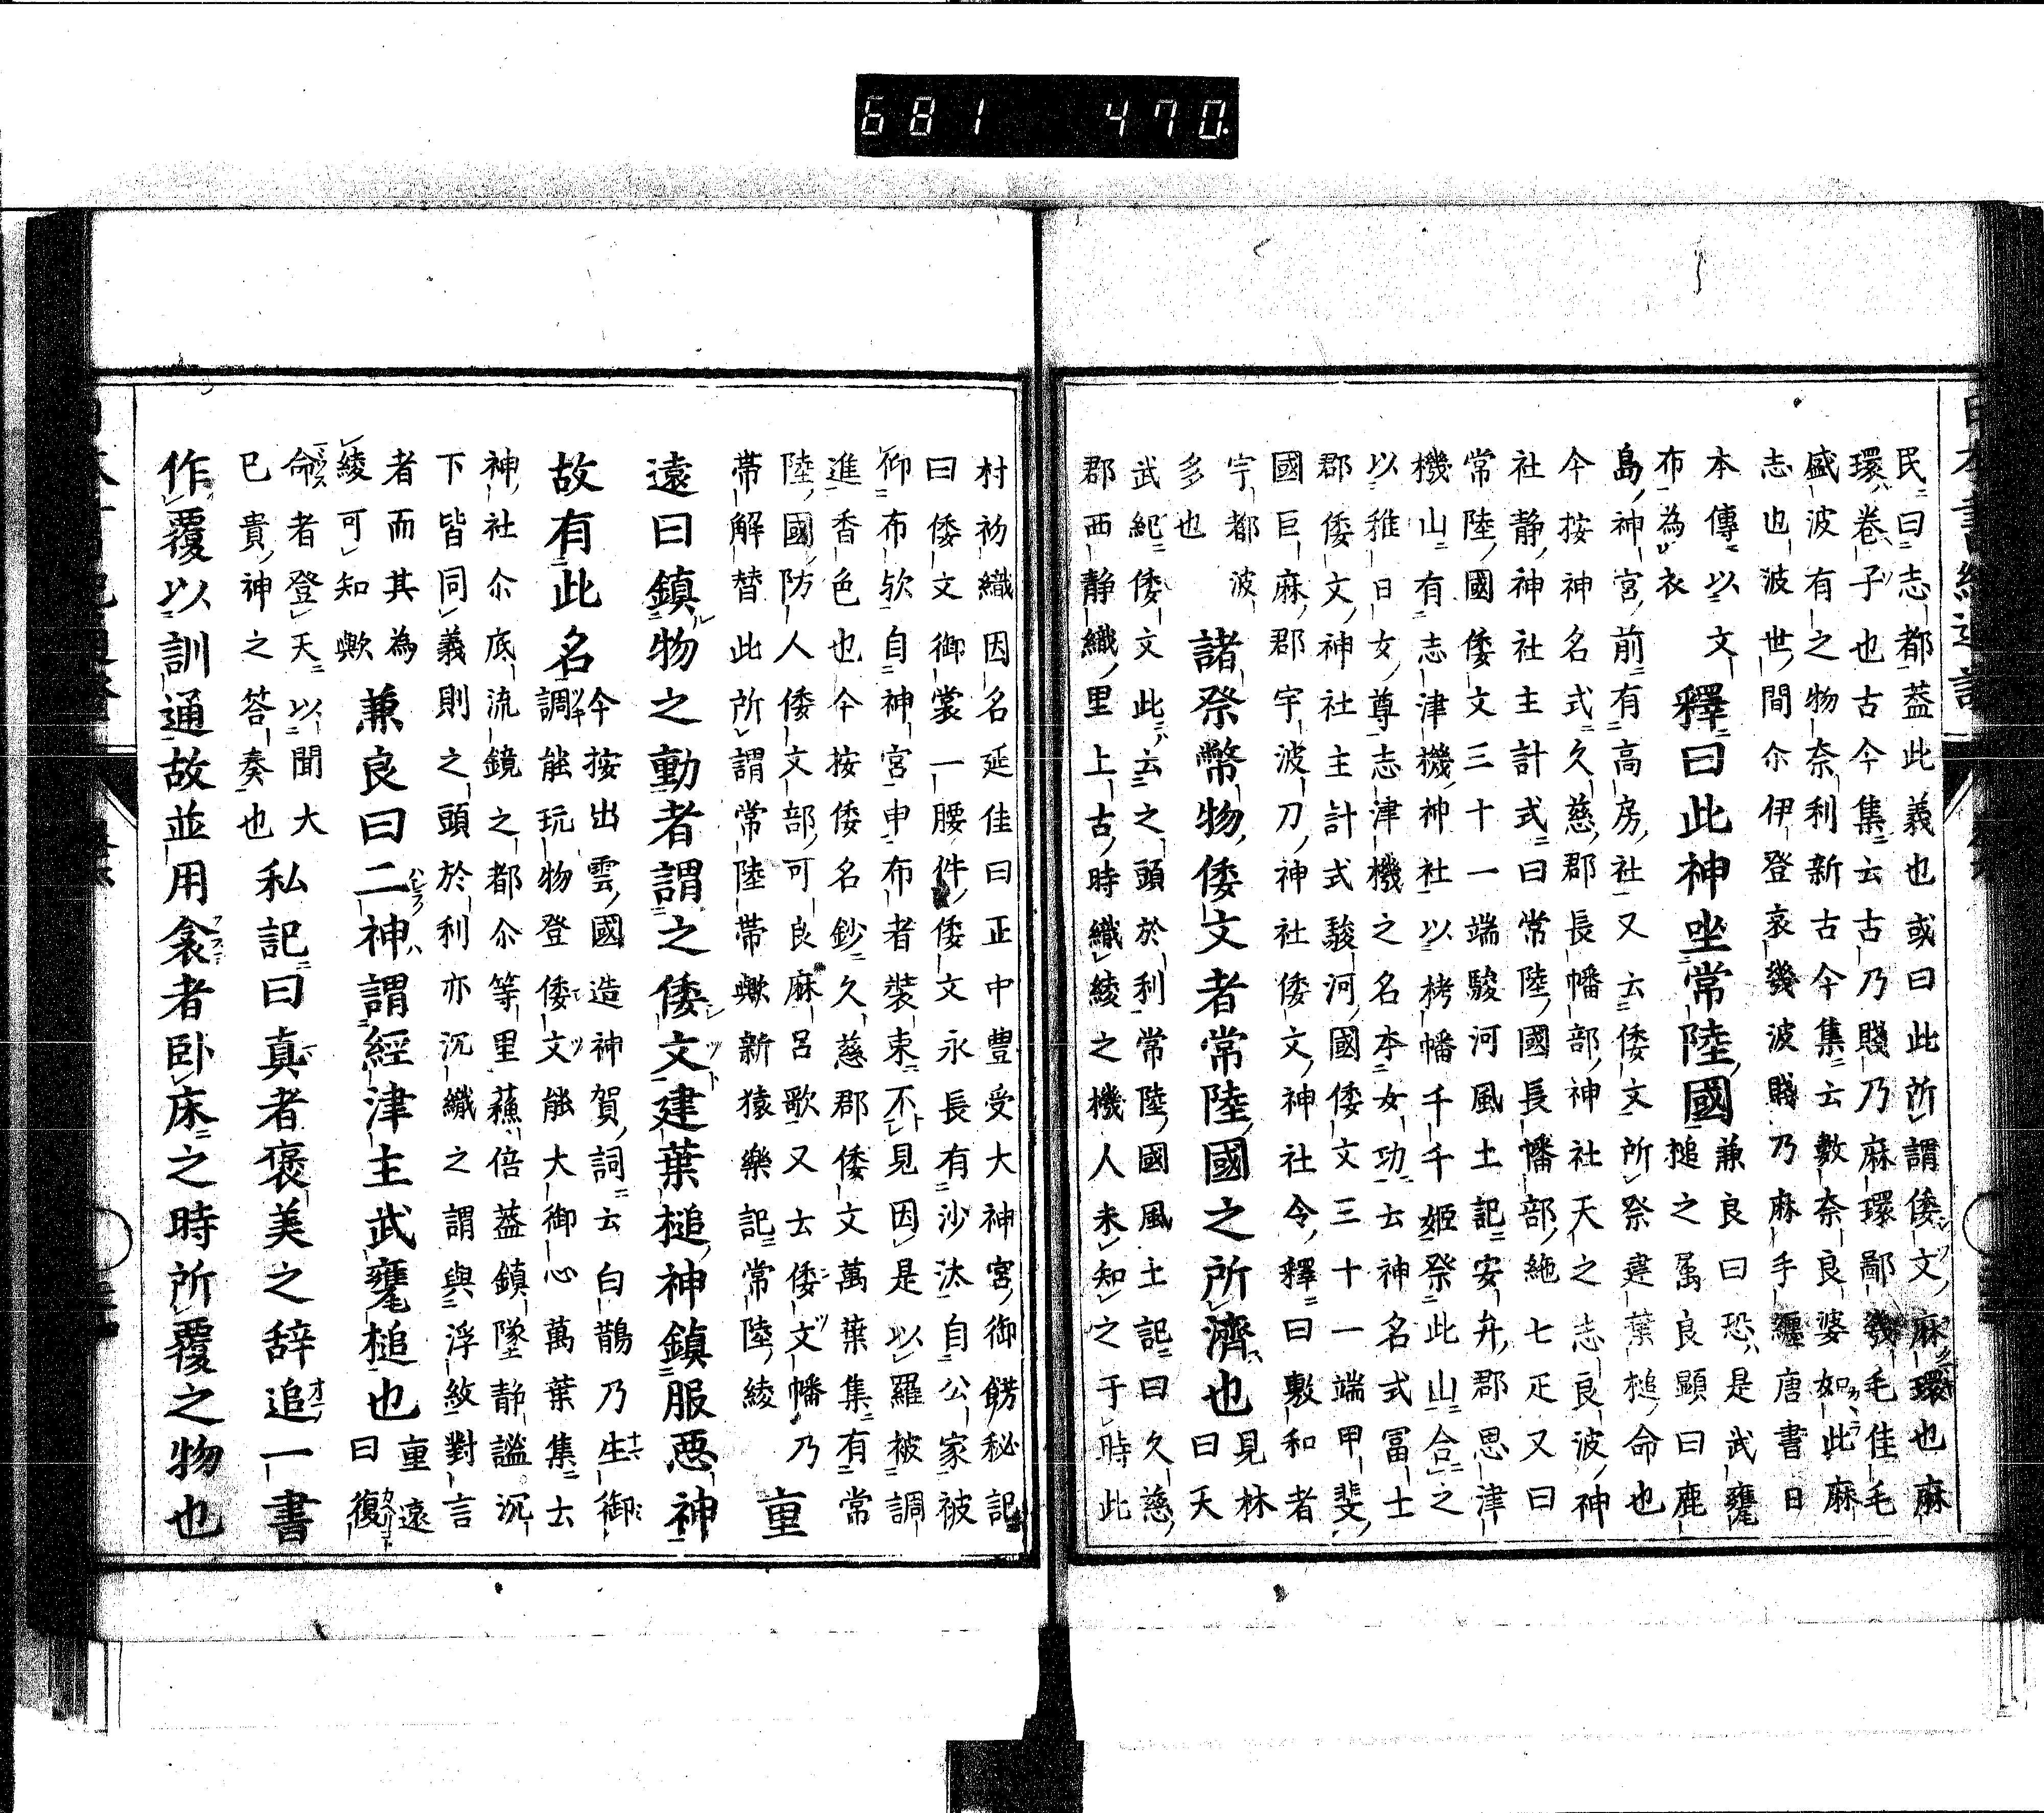 681 470
民曰志都葢此義也或曰此所謂倭文麻環也麻
環卷子也古今集云古乃賤乃麻環鄙幾毛佳毛
盛波有之物奈利新古今集云數奈良婆如此麻
志也波世間尒伊登哀幾波賤乃麻手纏唐書曰
本傳以文
布為衣
釋曰此神坐常陸國
兼良曰恐是武甕
槌之属良顯曰鹿
島神宮前有高房社又云倭文所祭建葉槌命也
今按神名式久慈郡長幡部神社天之志良波神
社静神社主計式曰常陸國長幡部絁七疋又曰
常陸國倭文三十一端駿河風土記安弁郡思津
機山有志津機神社以栲幡千千姬祭此山合之
以稚日女尊志津機之名本女功云神名式冨士
郡倭文神社主計式駿河國倭文三十一端甲斐
國巨麻郡宇波刀神社倭文神社令釋曰敷和者
宇都波
多也
諸祭幣物倭文者常陸國之所濟也
見林
曰天
武紀倭文此云之頭於利常陸國風土記曰久慈
郡西静織里上古時織綾之機人未知之于時此
村初織因名延佳曰正中豊受大神宮御餝秘記
曰倭文御裳一腰件倭文永長有沙汰自公家被
仰布欤自神宮申布者裝束不見因是以羅被調
進香色也今按倭名鈔久慈郡倭文萬葉集有常
陸國防人倭文部可良麻呂歌又云倭文幡乃
帶解替此所謂常陸帶歟新猿樂記常陸綾
重
遠曰鎮物之動者謂之倭文建葉槌神鎮服惡神
故有此名
今按出雲國造神賀詞云白鵲乃生御
調能玩物登倭文能大御心萬葉集云
神社尒底流鏡之都尒等里蘓倍葢鎮墜静謐沉
下皆同義則之頭於利亦沉織之謂與浮紋對言
者而其為
綾可知歟
兼良曰二神謂經津主武甕槌也
重遠
曰復
命者登天以聞大
已貴神之答奏也
私記曰真者褒美之辞追一書
作覆以訓通故並用衾者卧床之時所覆之物也